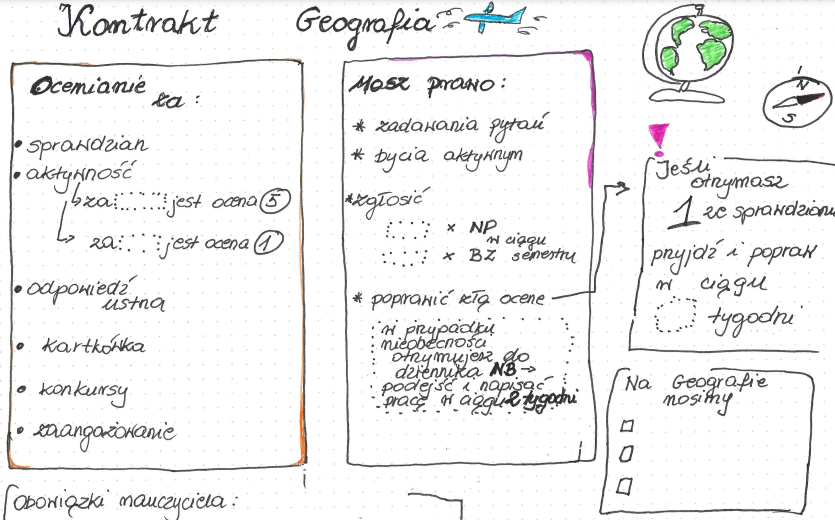 Kontrakt Geografia
Ocenianie
za:
• sprawdzian
• aktywność
za jest ocena 5
za jest ocena 1
• odpowiedź
ustna
• kartkówka
• konkursy
• zaangażowanie
Masz prawo:
* zadawania pytań
* bycia aktywnym
* zgłosić
x NP
w ciągu
x BZ semestru
* poprawić złą ocene
w przypadku
nieobecności
otrzymujesz do
dziennika NB →
podejść i napisać
pracę w ciągu 2 tygodni
N
S
Jeśli
otrzymasz
1 ze sprawdzianu
przyjdź i popraw
w ciągu
tygodni
Na Geografie
nosimy
Obowiązki nauczyciela: